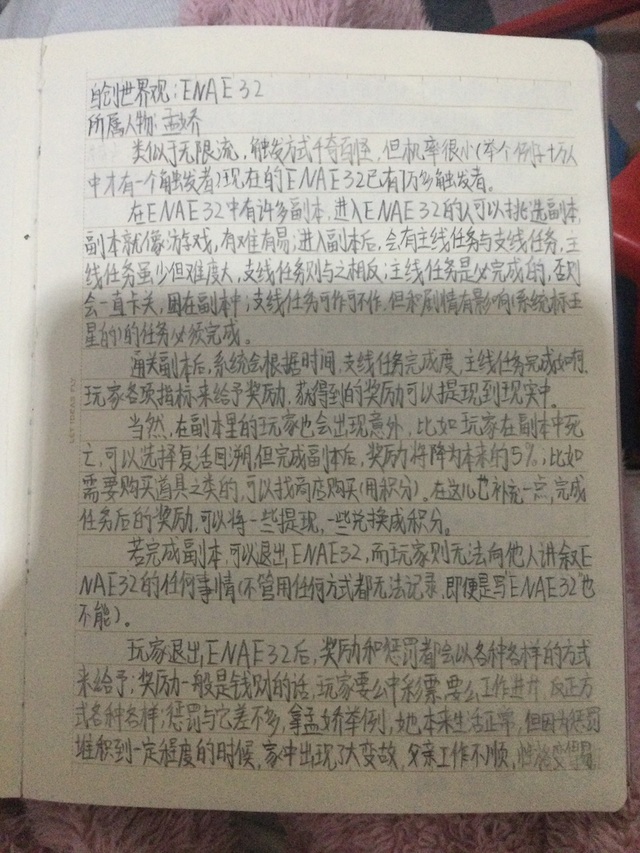 自创世界观：ENAE32
所属人物：孟娇
类似于无限流，触发方式千奇百怪，但机率很小（举个例子十万人
中才有一个触发者）现在的ENAE32已有1万多触发者。
在ENAE32中有许多副本，进入ENAE32的人可以挑选副本，
副本就像游戏，有难有易；进入副本后，会有主线任务与支线任务，主
线任务虽少但难度大，支线任务则与之相反；主线任务是必完成的，否则
会一直卡关，困在副本中；支线任务可作可不作，但和剧情有影响（系统标王
星的）的任务必须完成。
通关副本后，系统会根据时间，支线任务完成度，主线任务完成如何，
玩家各项指标来给予奖励，获得到的奖励可以提现到现实中。
当然，在副本里的玩家也会出现意外，比如玩家在副本中死
亡，可以选择复活回溯，但完成副本后，奖励将降为本来的5%，比如
需要购买道具之类的，可以找商店购买（用积分）。在这儿也补充一点，完成
任务后的奖励，可以将一些提现，一些兑换成积分。
若完成副本，可以退出ENAE32，而玩家则无法向他人讲叙E
NAE32的任何事情（不管用任何方式都无法记录，即便是写“ENAE32”也
不能）。
玩家退出ENAE32后，奖励和惩罚都会以各种各样的方式
来给予；奖励一般是钱别的话，玩家要么中彩票，要么工作进升，反正方
式各种各样；惩罚与它差不多，拿孟娇举例，她本来生活正常，但因为惩罚
堆积到一定程度的时候，家中出现了大变故，父亲工作不顺，性格变得